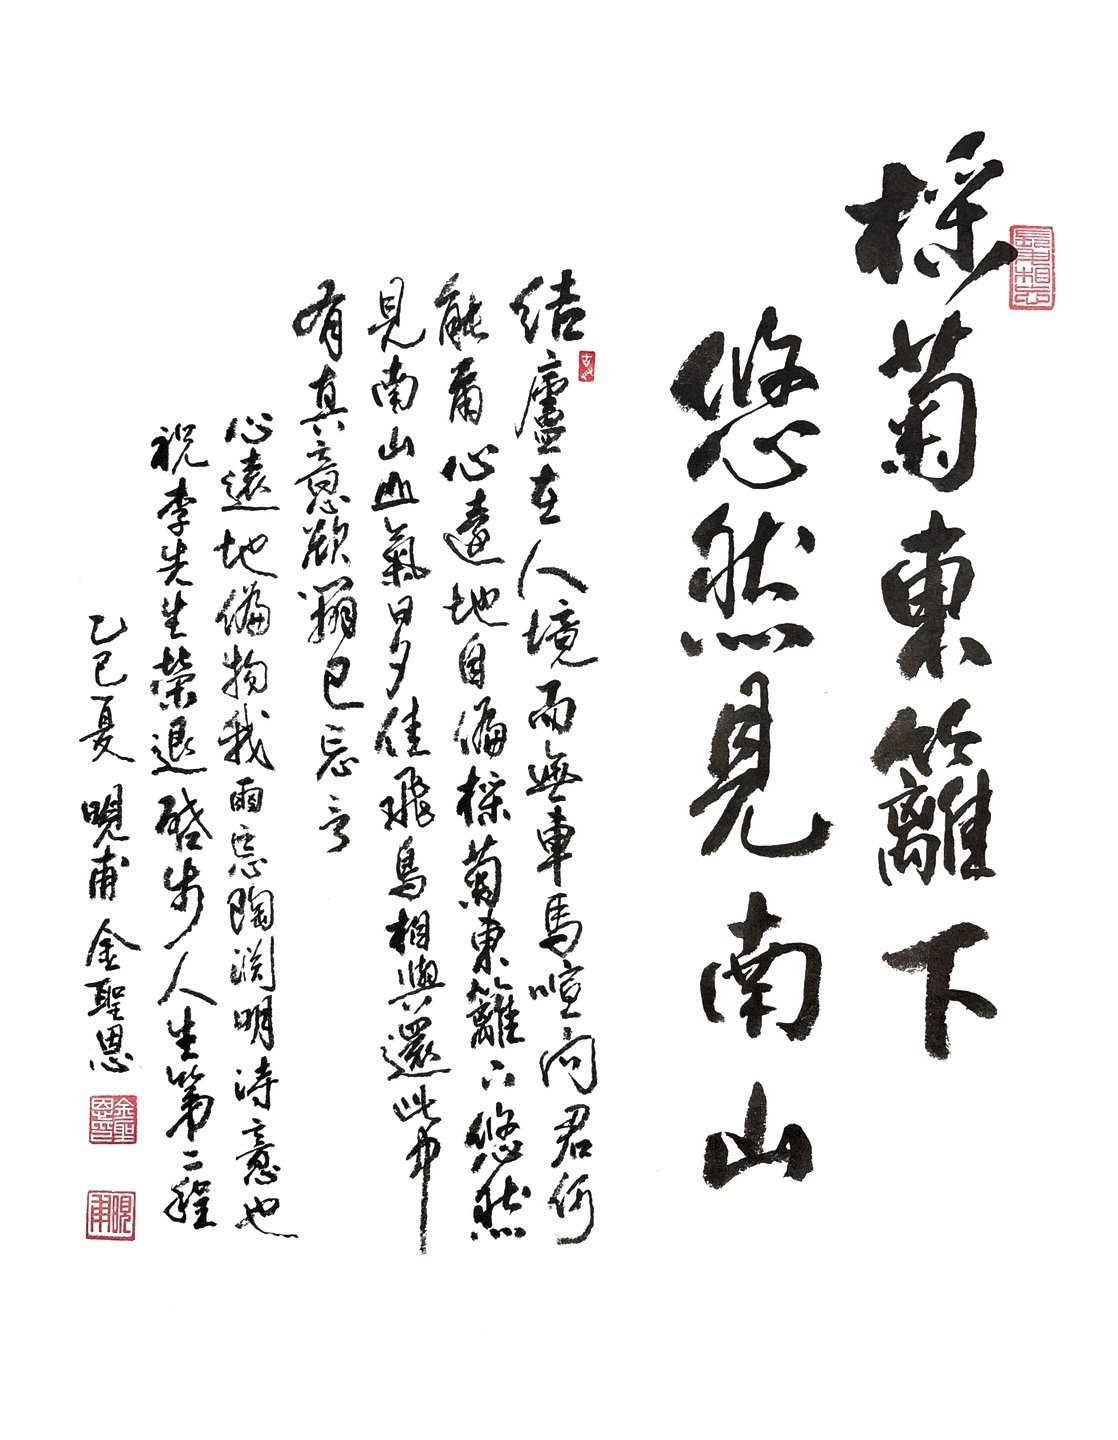 採菊東籬下
悠然見南山
結廬在人境而無車馬喧問君何
能爾心遠地自偏採菊東籬下悠然
見南山山氣日夕佳飛鳥相與還此中
有真意欲辨已忘言
心遠地偏物我兩忘陶淵明詩意也
祝李先生榮退啓步人生第二程
乙巳夏 晛甫 金聖恩